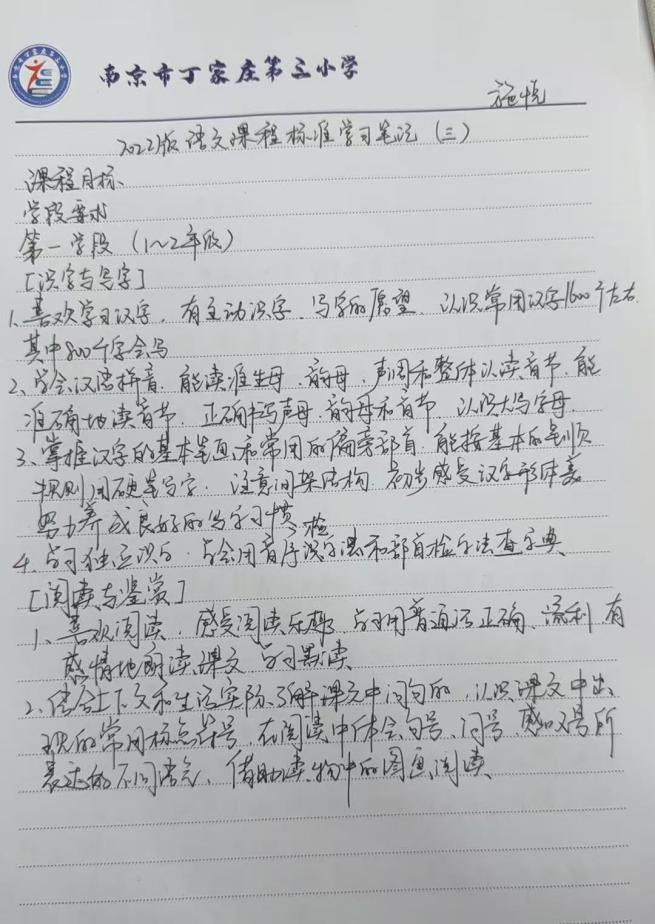 南京市丁家庄第三小学
施悦
2022版语文课程标准学习笔记（三）
课程目标
学段要求
第一学段（1～2年级）
[识字与写字]
1、喜欢学习汉字，有主动识字、写字的愿望，认识常用汉字1600个左右
其中800个字会写
2、学会汉语拼音，能读准生母、韵母、声调和整体认读音节，能
准确地读音节，正确书写声母、韵母和音节，认识大写字母
3、掌握汉字的基本笔画和常用的偏旁部首，能按基本的笔顺
规则用硬笔写字，注意间架结构，初步感受汉字形体美
努力养成良好的写字习惯
4、学习独立识字，学会用音序检字法和部首检字法查字典
[阅读与鉴赏]
1、喜欢阅读，感受阅读乐趣，学习用普通话正确、流利、有
感情地朗读课文，学习默读
2、结合上下文和生活实际了解课文中词句的，认识课文中出
现的常用标点符号，在阅读中体会句号、问号、感叹号所
表达的不同语气，借助读物中的图画阅读